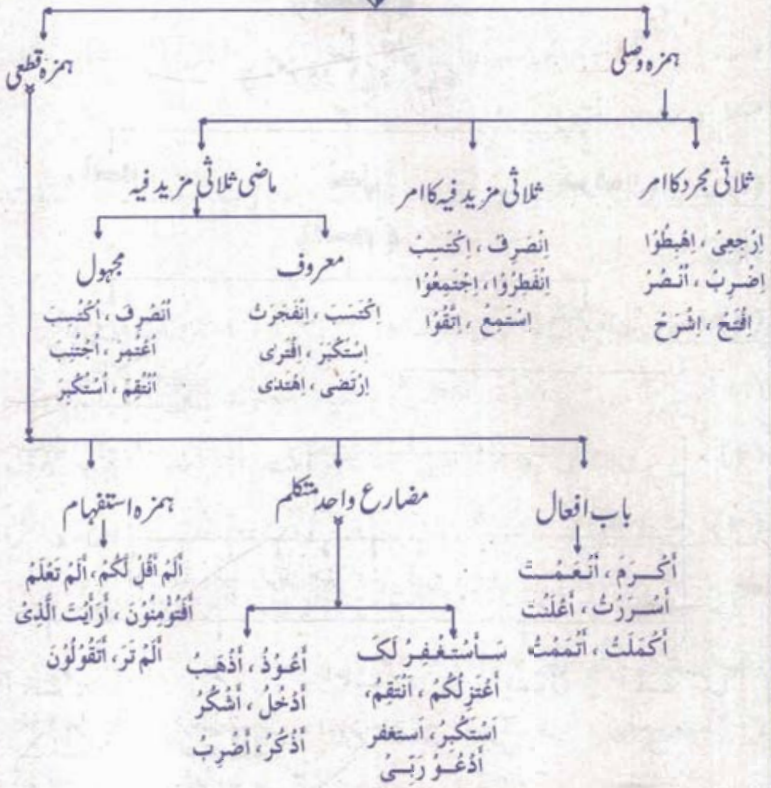 ہمزہ وصلی
ہمزہ قطعی
ثلاثی مجرد کا امر
اِرْجِعِیْ ، اِهْبِطُوْا
اِضْرِبْ ، اُنْصُرْ
اِفْتَحْ ، اِشْرَحْ
ثلاثی مزید فیہ کا امر
اِنْصَرِفْ ، اِكْتَسِبْ
اِنْفَطِرُوْا ، اِجْتَمِعُوْا
اِسْتَمِعْ ، اِتَّقُوْا
ماضی ثلاثی مزید فیہ
معروف
اِكْتَسَبَ ، اِنْفَجَرَتْ
اِسْتَكْبَرَ ، اِفْتَرٰی
اِرْتَضٰی ، اِهْتَدٰی
مجہول
اُنْصُرِفَ ، اُكْتُسِبَ
اُعْتُمِرَ ، اُجْتُنِبَ
اُنْتُقِمَ ، اُسْتُكْبِرَ
باب افعال
أَكْرَمَ ، أَنْعَمْتَ
أَسْرَرْتُ ، أَعْلَنْتُ
أَكْمَلْتُ ، أَتْمَمْتُ
مضارع واحد متکلم
سَأَسْتَغْفِرُ لَکَ
أَعْتَزِلُكُمْ ، أَنْتَقِمُ،
أَسْتَكْبِرُ، أَستغفر
أَدْعُوْ رَبِّیْ
أَعُوْذُ ، أَذْهَبُ
أَدْخُلُ ، أَشْكُرُ
أَذْكُرُ ، أَضْرِبُ
ہمزہ استفہام
أَلَمْ أَقُلْ لَكُمْ ، أَلَمْ تَعْلَمْ
أَفَتُؤْمِنُوْنَ ، أَرَأَيْتَ الَّذِیْ
أَلَمْ تَرَ ، أَتَقُوْلُوْنَ